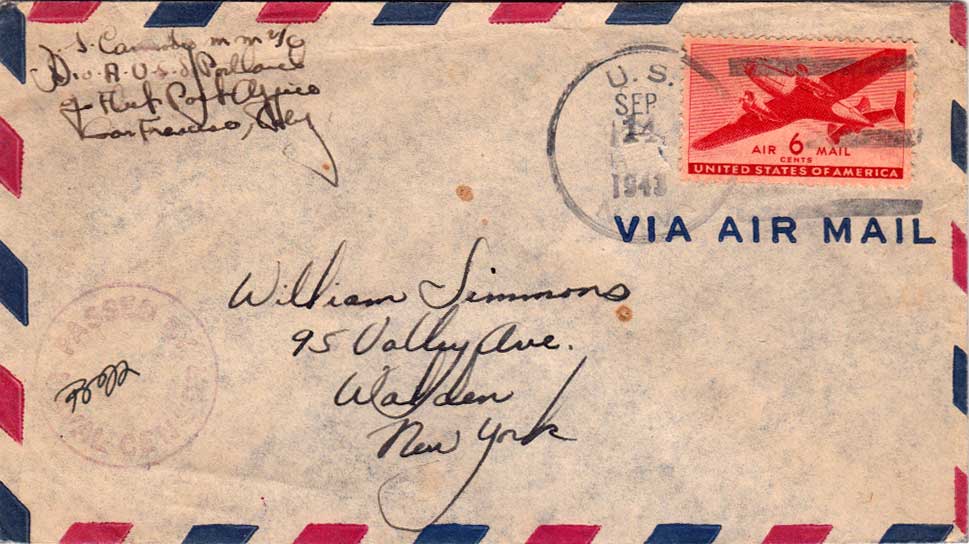 Div. A. U.S.S. Portland
Fleet Post Office
San Francisco,
U.S.
SEP
14
1943
AIR 6 MAIL
CENTS
UNITED STATES OF AMERICA
VIA AIR MAIL
William Simmons
95 Valley Ave.
Walden
New York
PASSED BY
NAVAL CENSOR